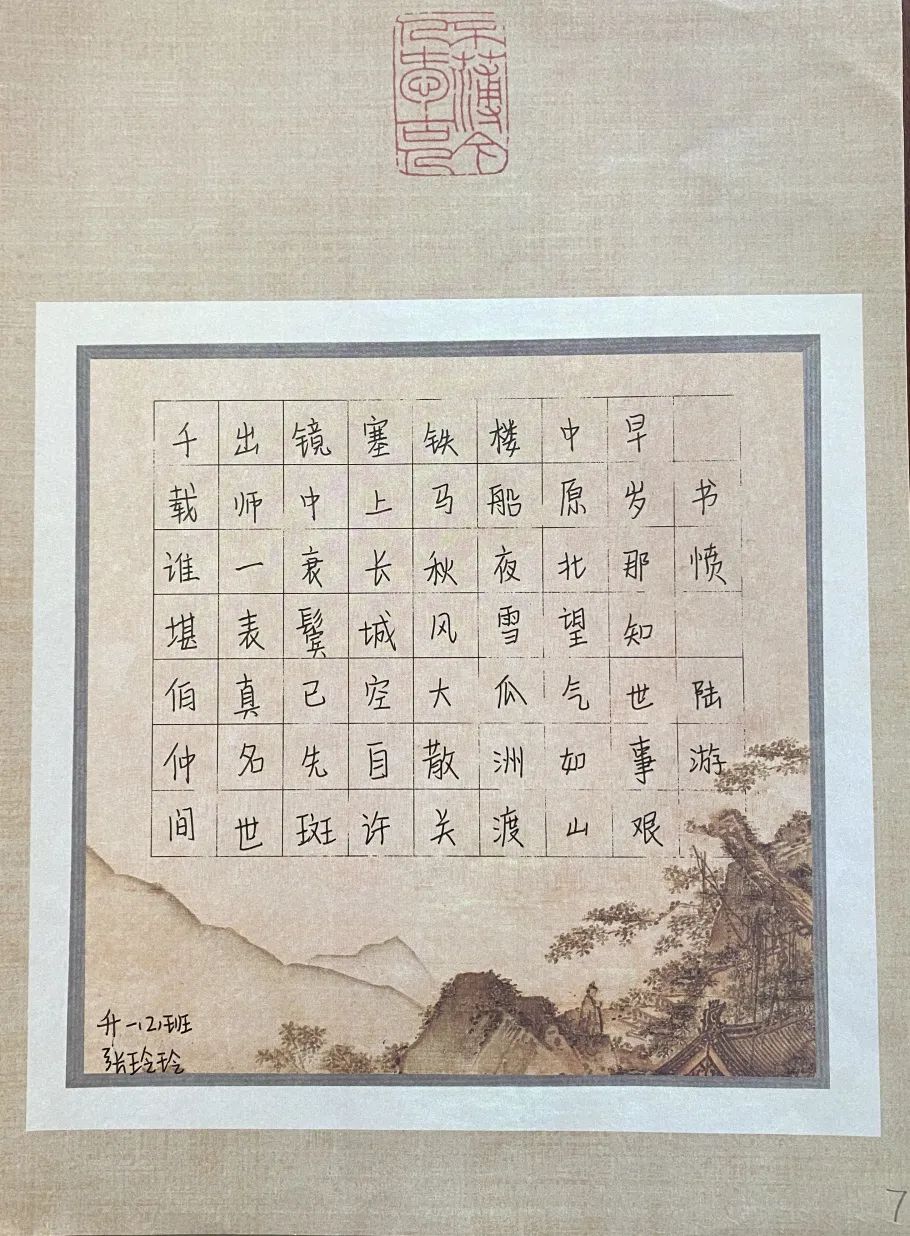 不薄今
人爱古人
书愤 陆游
早岁那知世事艰
中原北望气如山
楼船夜雪瓜洲渡
铁马秋风大散关
塞上长城空自许
镜中衰鬓已先斑
出师一表真名世
千载谁堪伯仲间
升一(2)班
张玲玲
7